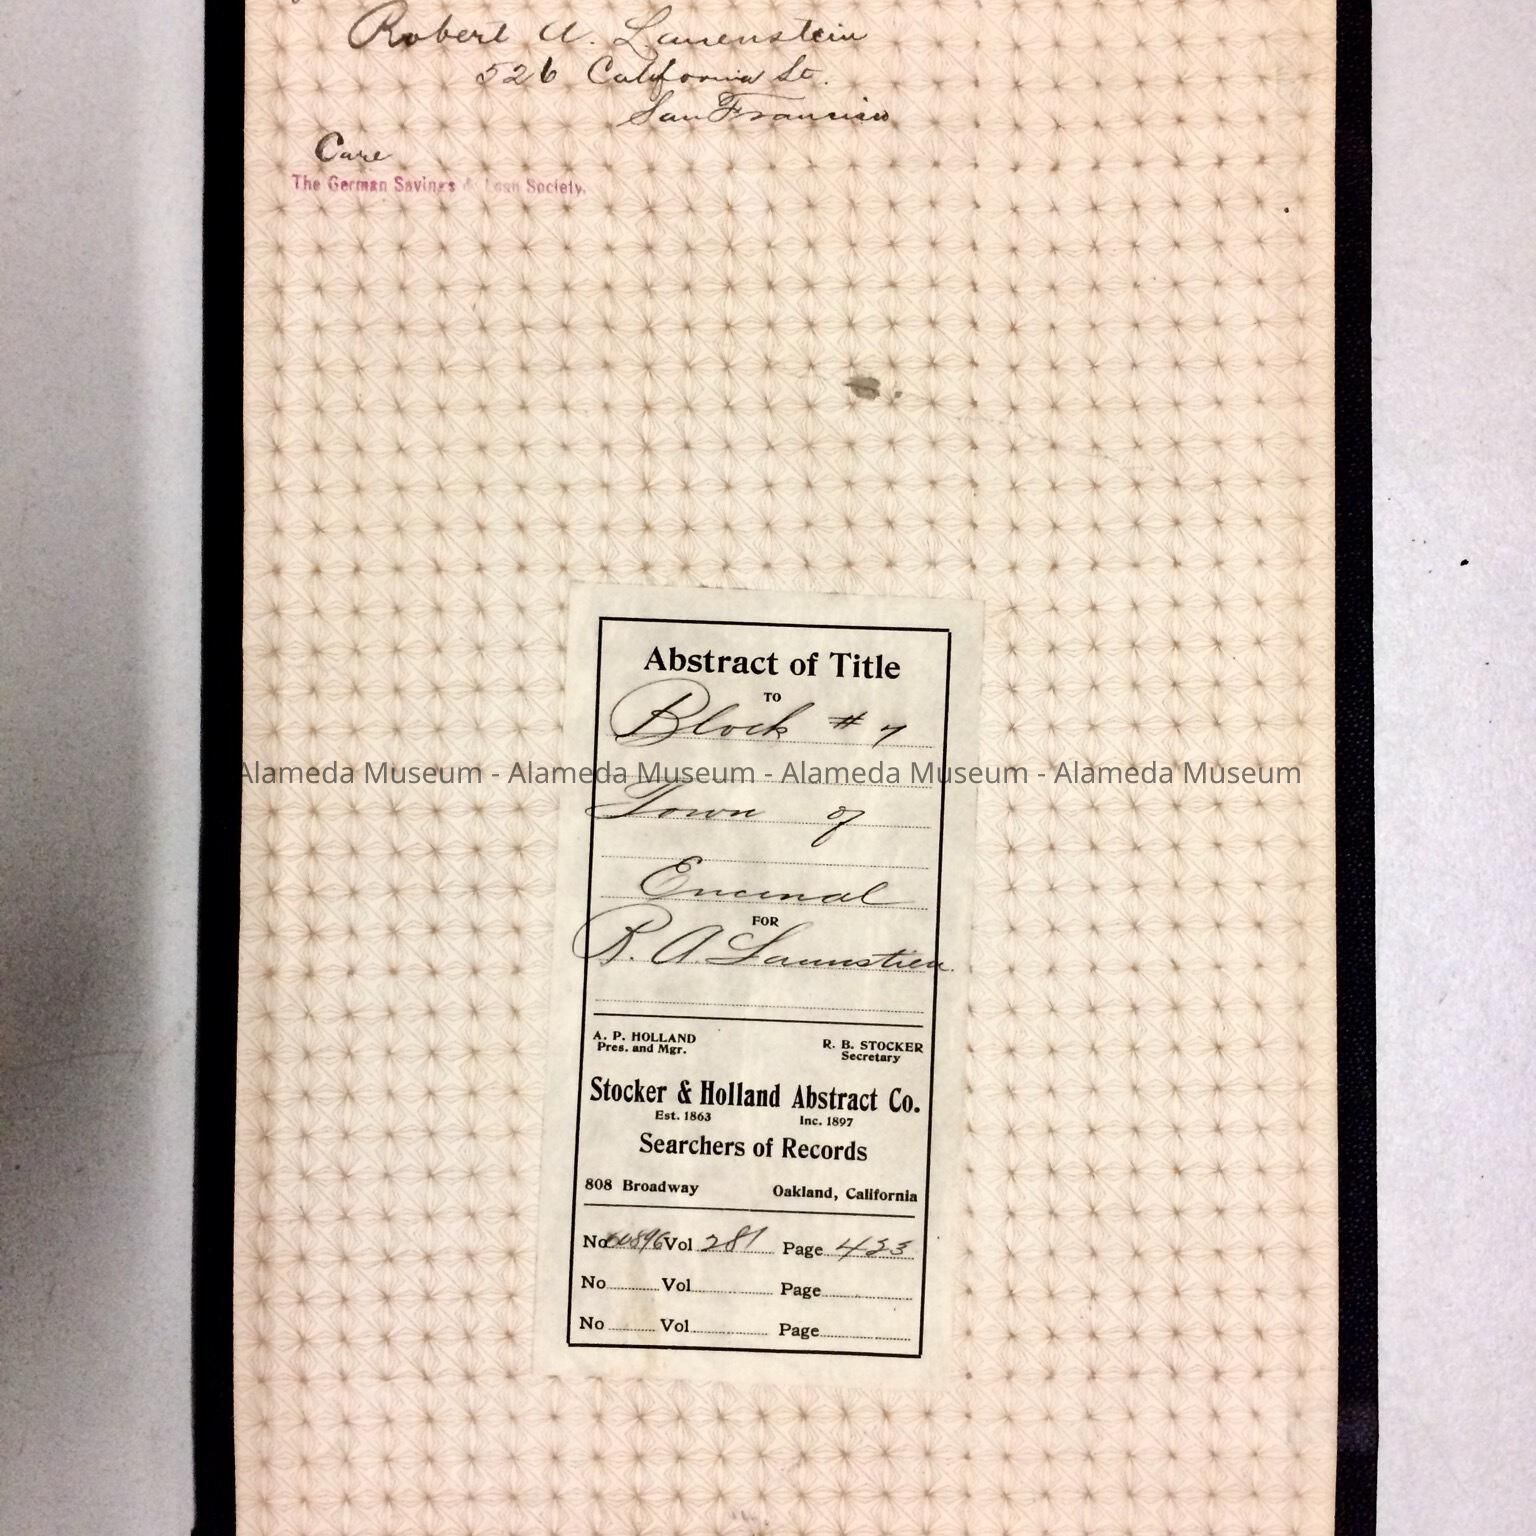 Robert A. Lauenstein
526 California St.
San Francisco
Care
The German Savings & Loan Society.
Abstract of Title
TO
Block # 7
Alameda Museum - Alameda Museum - Alameda Museum - Alameda Museum
Town of
Encinal
FOR
R. A. Launstien
A. P. HOLLAND R. B. STOCKER
Pres. and Mgr. Secretary
Stocker & Holland Abstract Co.
Est. 1863 Inc. 1897
Searchers of Records
808 Broadway Oakland, California
No Vol 281 Page 433
No Vol Page
No Vol Page